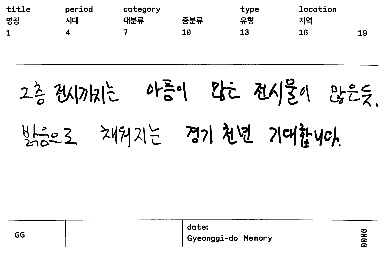 title period category type location
명칭 시대 대분류 중분류 유형 지역
1 4 7 10 13 16 19
2층 전시까지는 아픔이 많은 전시물이 많은듯,
밝음으로 채워지는 경기 천년 기대합니다.
GG
date:
Gyeonggi-do Memory